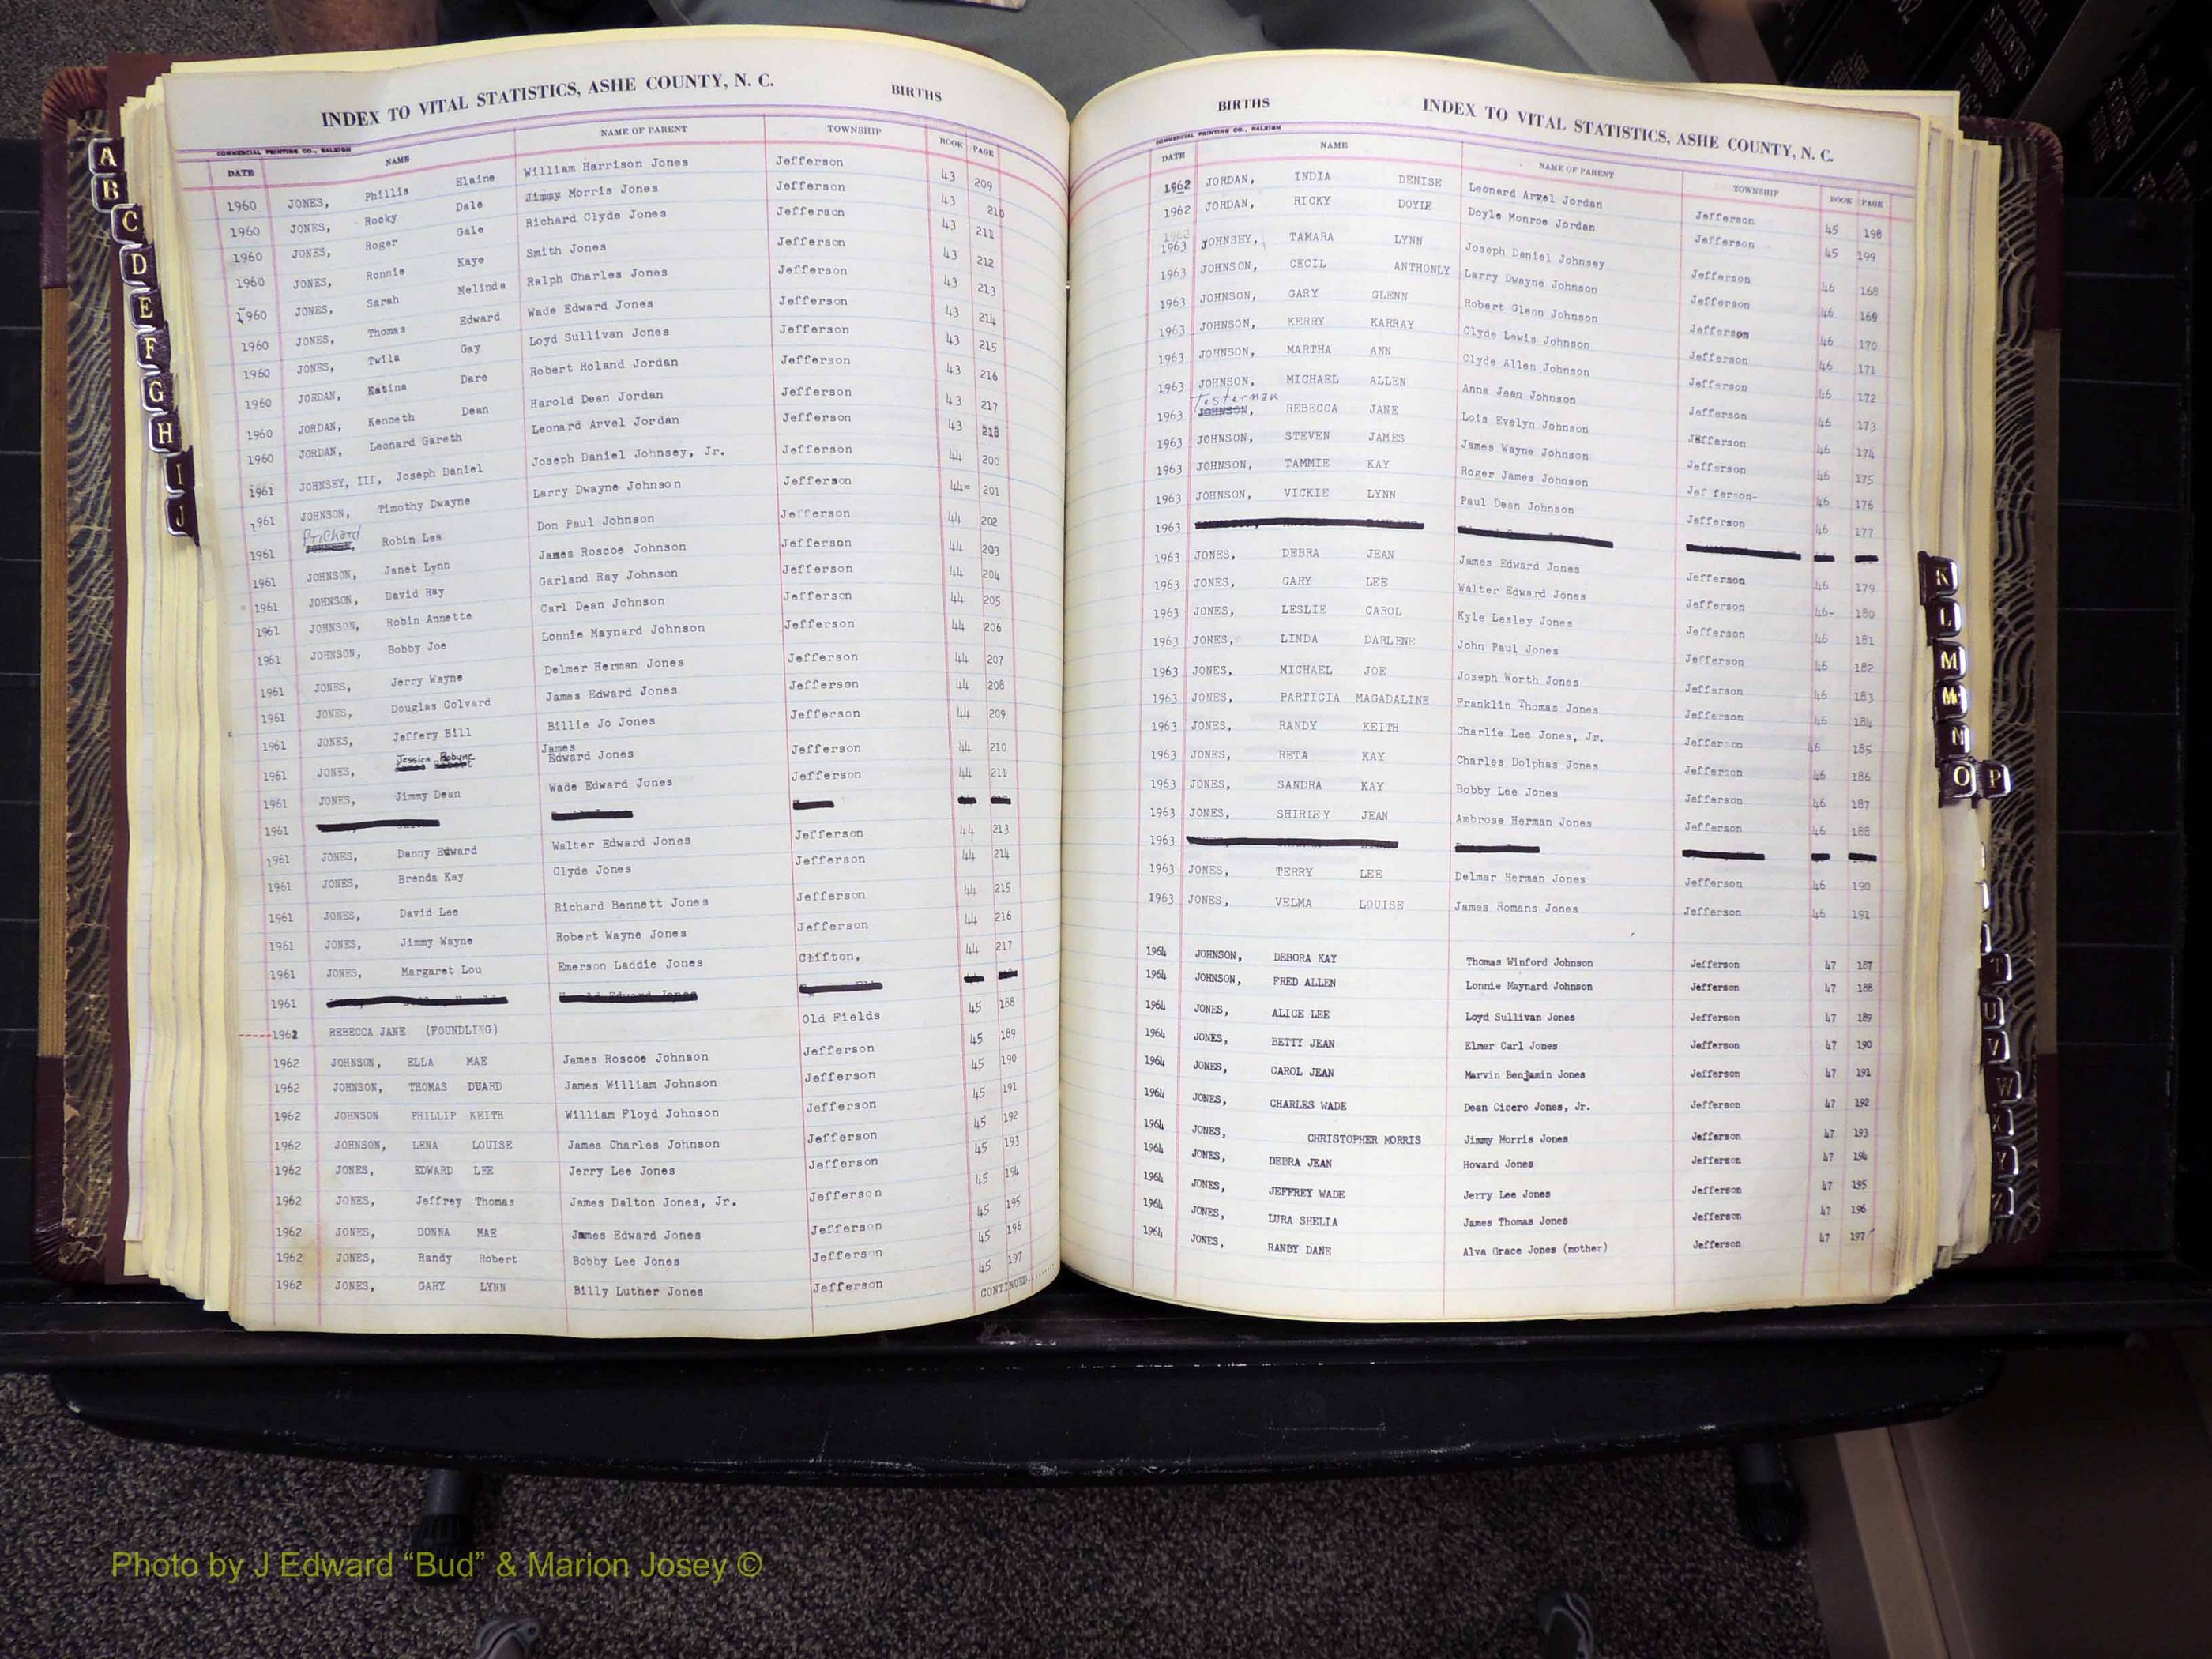 INDEX TO VITAL STATISTICS, ASHE COUNTY, N. C. BIRTHS
COMMERCIAL PRINTING CO., RALEIGH
DATE NAME NAME OF PARENT TOWNSHIP BOOK PAGE
1960 JONES, Phillis Elaine William Harrison Jones Jefferson 43 209
1960 JONES, Rocky Dale Jimmy Morris Jones Jefferson 43 210
1960 JONES, Roger Gale Richard Clyde Jones Jefferson 43 211
1960 JONES, Ronnie Kaye Smith Jones Jefferson 43 212
1960 JONES, Sarah Melinda Ralph Charles Jones Jefferson 43 213
1960 JONES, Thomas Edward Wade Edward Jones Jefferson 43 214
1960 JONES, Twila Gay Loyd Sullivan Jones Jefferson 43 215
1960 JORDAN, Katina Dare Robert Roland Jordan Jefferson 43 216
1960 JORDAN, Kenneth Dean Harold Dean Jordan Jefferson 43 217
1960 JORDAN, Leonard Gareth Leonard Arvel Jordan Jefferson 43 218
1961 JOHNSEY, III, Joseph Daniel Joseph Daniel Johnsey, Jr. Jefferson 44 200
1961 JOHNSON, Timothy Dwayne Larry Dwayne Johnson Jefferson 44= 201
1961 Prichard Robin Lea Don Paul Johnson Jefferson 44 202
1961 JOHNSON, Janet Lynn James Roscoe Johnson Jefferson 44 203
1961 JOHNSON, David Ray Garland Ray Johnson Jefferson 44 204
1961 JOHNSON, Robin Annette Carl Dean Johnson Jefferson 44 205
1961 JOHNSON, Bobby Joe Lonnie Maynard Johnson Jefferson 44 206
1961 JONES, Jerry Wayne Delmer Herman Jones Jefferson 44 207
1961 JONES, Douglas Colvard James Edward Jones Jefferson 44 208
1961 JONES, Jeffery Bill Billie Jo Jones Jefferson 44 209
1961 JONES, Jessica Robyne James Edward Jones Jefferson 44 210
1961 JONES, Jimmy Dean Wade Edward Jones Jefferson 44 211
1961
1961 JONES, Danny Edward Walter Edward Jones Jefferson 44 213
1961 JONES, Brenda Kay Clyde Jones Jefferson 44 214
1961 JONES, David Lee Richard Bennett Jones Jefferson 44 215
1961 JONES, Jimmy Wayne Robert Wayne Jones Jefferson 44 216
1961 JONES, Margaret Lou Emerson Laddie Jones Clifton, 44 217
1961
1962 REBECCA JANE (FOUNDLING) Old Fields 45 188
1962 JOHNSON, ELLA MAE James Roscoe Johnson Jefferson 45 189
1962 JOHNSON, THOMAS DUARD James William Johnson Jefferson 45 190
1962 JOHNSON PHILLIP KEITH William Floyd Johnson Jefferson 45 191
1962 JOHNSON, LENA LOUISE James Charles Johnson Jefferson 45 192
1962 JONES, EDWARD LEE Jerry Lee Jones Jefferson 45 193
1962 JONES, Jeffrey Thomas James Dalton Jones, Jr. Jefferson 45 194
1962 JONES, DONNA MAE James Edward Jones Jefferson 45 195
1962 JONES, Randy Robert Bobby Lee Jones Jefferson 45 196
1962 JONES, GARY LYNN Billy Luther Jones Jefferson 45 197
CONTINUED........
BIRTHS INDEX TO VITAL STATISTICS, ASHE COUNTY, N. C.
COMMERCIAL PRINTING CO., RALEIGH
DATE NAME NAME OF PARENT TOWNSHIP BOOK PAGE
1962 JORDAN, INDIA DENISE Leonard Arvel Jordan Jefferson 45 198
1962 JORDAN, RICKY DOYLE Doyle Monroe Jordan Jefferson 45 199
1963 JOHNSEY, TAMARA LYNN Joseph Daniel Johnsey Jefferson 46 168
1963 JOHNSON, CECIL ANTHONLY Larry Dwayne Johnson Jefferson 46 169
1963 JOHNSON, GARY GLENN Robert Glenn Johnson Jefferson 46 170
1963 JOHNSON, KERRY KARRAY Clyde Lewis Johnson Jefferson 46 171
1963 JOHNSON, MARTHA ANN Clyde Allen Johnson Jefferson 46 172
1963 JOHNSON, MICHAEL ALLEN Anna Jean Johnson Jefferson 46 173
1963 Testerman JOHNSON, REBECCA JANE Lois Evelyn Johnson Jefferson 46 174
1963 JOHNSON, STEVEN JAMES James Wayne Johnson Jefferson 46 175
1963 JOHNSON, TAMMIE KAY Roger James Johnson Jefferson- 46 176
1963 JOHNSON, VICKIE LYNN Paul Dean Johnson Jefferson 46 177
1963
1963 JONES, DEBRA JEAN James Edward Jones Jefferson 46 179
1963 JONES, GARY LEE Walter Edward Jones Jefferson 46- 180
1963 JONES, LESLIE CAROL Kyle Lesley Jones Jefferson 46 181
1963 JONES, LINDA DARLENE John Paul Jones Jefferson 46 182
1963 JONES, MICHAEL JOE Joseph Worth Jones Jefferson 46 183
1963 JONES, PARTICIA MAGADALINE Franklin Thomas Jones Jefferson 46 184
1963 JONES, RANDY KEITH Charlie Lee Jones, Jr. Jefferson 46 185
1963 JONES, RETA KAY Charles Dolphas Jones Jefferson 46 186
1963 JONES, SANDRA KAY Bobby Lee Jones Jefferson 46 187
1963 JONES, SHIRLEY JEAN Ambrose Herman Jones Jefferson 46 188
1963
1963 JONES, TERRY LEE Delmar Herman Jones Jefferson 46 190
1963 JONES, VELMA LOUISE James Romans Jones Jefferson 46 191
1964 JOHNSON, DEBORA KAY Thomas Winford Johnson Jefferson 47 187
1964 JOHNSON, FRED ALLEN Lonnie Maynard Johnson Jefferson 47 188
1964 JONES, ALICE LEE Loyd Sullivan Jones Jefferson 47 189
1964 JONES, BETTY JEAN Elmer Carl Jones Jefferson 47 190
1964 JONES, CAROL JEAN Marvin Benjamin Jones Jefferson 47 191
1964 JONES, CHARLES WADE Dean Cicero Jones, Jr. Jefferson 47 192
1964 JONES, CHRISTOPHER MORRIS Jimmy Morris Jones Jefferson 47 193
1964 JONES, DEBRA JEAN Howard Jones Jefferson 47 194
1964 JONES, JEFFREY WADE Jerry Lee Jones Jefferson 47 195
1964 JONES, LURA SHELIA James Thomas Jones Jefferson 47 196
1964 JONES, RANDY DANE Alva Grace Jones (mother) Jefferson 47 197
A
B
C
D
E
F
G
H
I
J
K
L
M
N
O P
T
U
V
W
Photo by J Edward “Bud” & Marion Josey ©